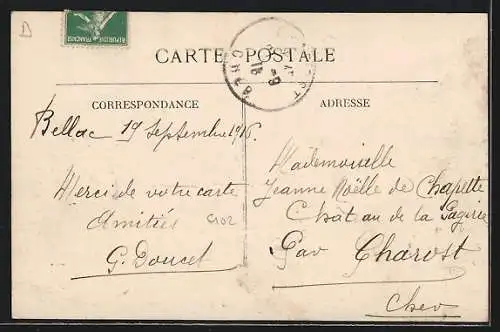 D
REPUBLIQUE FRANCAISE
CARTE POSTALE
CORRESPONDANCE
ADRESSE
Bellac 19 Septembre 1916.
Merci de votre carte
Amitiés
G. Doucet
Mademoiselle
Jeanne Noëlle de Chapette
Château de la
Par Charost
Cher